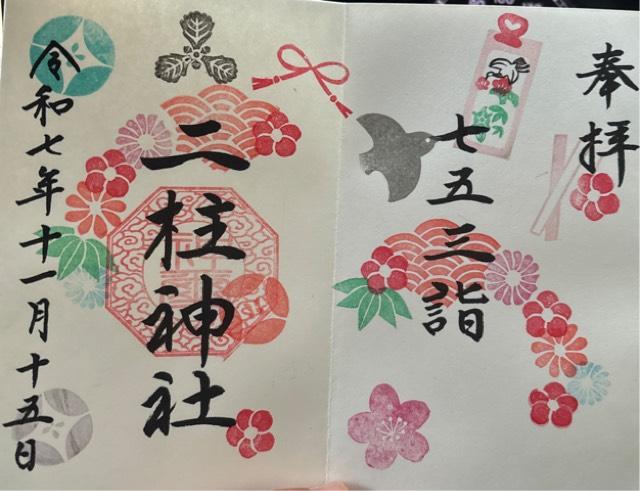 奉拝
七五三詣
二柱神社
令和七年十一月十五日